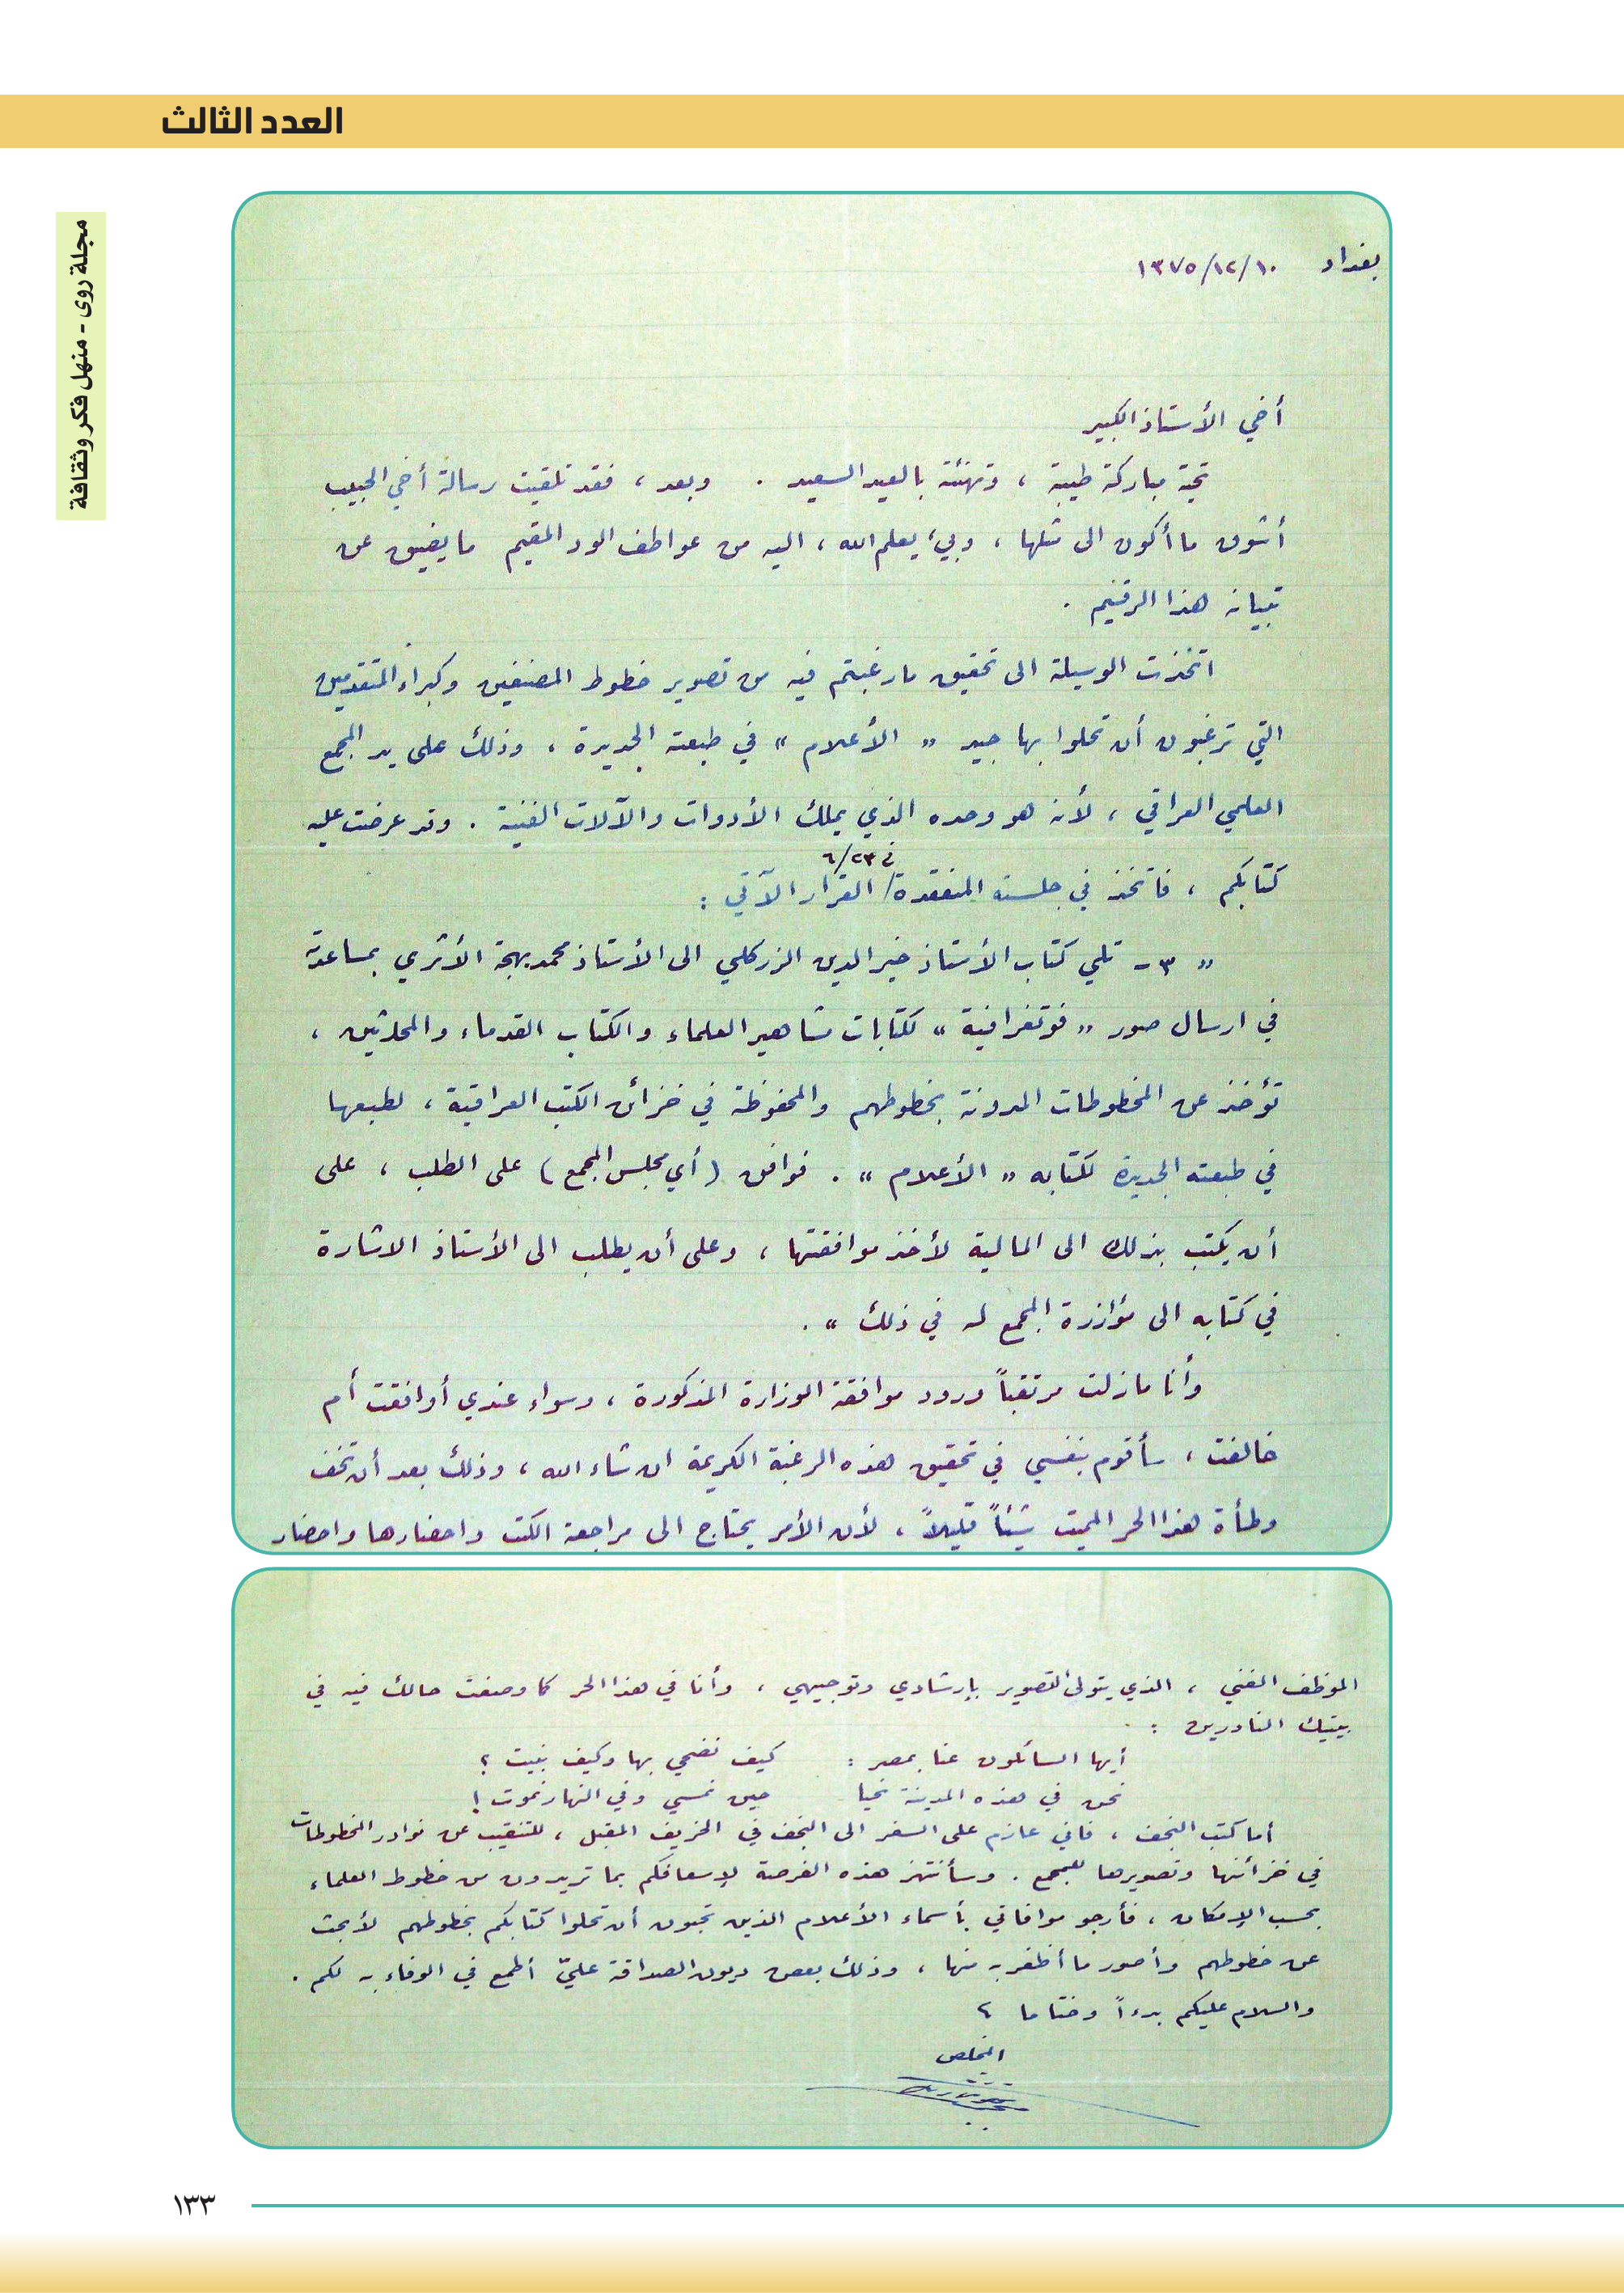 العدد الثالث
مجلة روى - منهل فكر وثقافة
بغداد ١٣٧٥/١٢/١٠
أخي الأستاذ الكبير
تحية مباركة طيبة ، وتهنئة بالعيد السعيد . وبعد ، فقد تلقيت رسالة أخي الحبيب
أشوق ما أكون الى مثلها ، وبي ، يعلم الله ، اليه من عواطف الود المقيم ما يضيق عن
تبيانه هذا الرقيم .
اتخذت الوسيلة الى تحقيق ما رغبتم فيه من تصوير خطوط المصنفين وكبراء المتقدمين
التي ترغبون أن تحلوا بها جيد « الأعلام » في طبعته الجديدة ، وذلك على يد المجمع
العلمي العراقي ، لأنه هو وحده الذي يملك الأدوات والآلات الفنية . وقد عرضت عليه
كتابكم ، فاتخذ في جلسته المنعقدة / في ٦/٢٣ القرار الآتي :
« ٣ - تلي كتاب الأستاذ خير الدين الزركلي الى الأستاذ محمد بهجة الأثري بمساعدته
في ارسال صور « فوتغرافية » لكتابات مشاهير العلماء والكتاب القدماء والمحدثين ،
تؤخذ عن المخطوطات المدونة بخطوطهم والمحفوظة في خزائن الكتب العراقية ، لطبعها
في طبعته الجديدة لكتابه « الأعلام » . فوافق ( أي مجلس المجمع ) على الطلب ، على
أن يكتب بذلك الى المالية لأخذ موافقتها ، وعلى أن يطلب الى الأستاذ الاشارة
في كتابه الى مؤازرة المجمع له في ذلك » .
وأنا مازلت مرتقباً ورود موافقة الوزارة المذكورة ، وسواء عندي أوافقت أم
خالفت ، سأقوم بنفسي في تحقيق هذه الرغبة الكريمة ان شاء الله ، وذلك بعد أن تخف
وطأة هذا الحر المميت شيئاً قليلاً ، لأن الأمر يحتاج الى مراجعة الكتب واحضارها واحضار
الموظف الفني ، الذي يتولى التصوير بإرشادي وتوجيهي ، وأنا في هذا الحر كما وصفت حالك فيه في
بيتيك النادرين :
أيها السائلون عنا بمصر : كيف نضحي بها وكيف نبيت ؟
نحن في هذه المدينة نحيا حين نمسي وفي النهار نموت !
أما كتب النجف ، فاني عازم على السفر الى النجف في الخريف المقبل ، للتنقيب عن نوادر المخطوطات
في خزائنها وتصويرها للمجمع . وسأنتهز هذه الفرصة لإسعافكم بما تريدون من خطوط العلماء
بحسب الإمكان ، فأرجو موافاتي بأسماء الأعلام الذين تحبون أن تحلوا كتابكم بخطوطهم لأبحث
عن خطوطهم وأصور ما أظفر به منها ، وذلك بعض ديون الصداقة عليّ أطمع في الوفاء به لكم .
والسلام عليكم بدءاً وختاما
المخلص
١٣٣